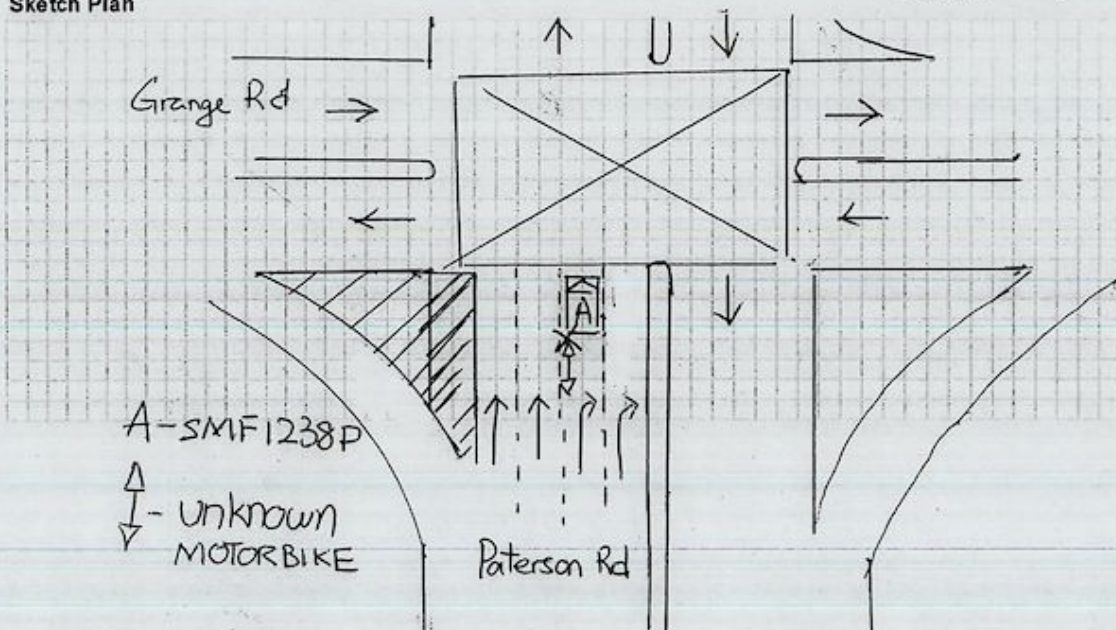 Sketch Plan
Grange Rd
A
A-SMF1238P
- unknown
MOTORBIKE
Paterson Rd